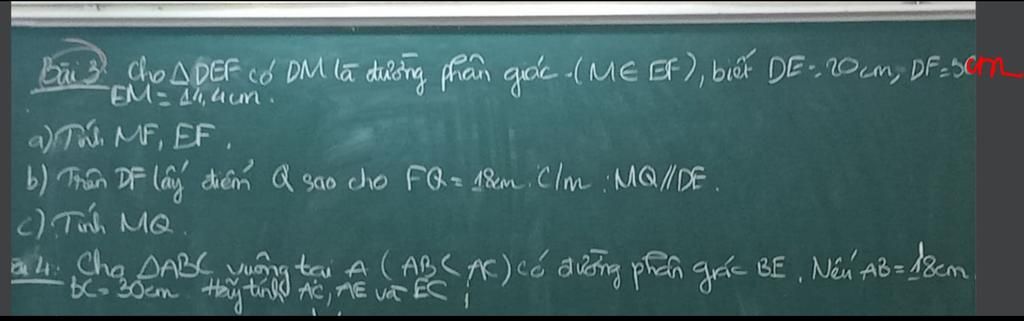 Bài 3 Cho △DEF có DM là đường phân giác (M∈ EF), biết DE = 20cm, DF=3cm
EM = 14,4cm.
a) Tính MF, EF.
b) Trên DF lấy điểm Q sao cho FQ = 18cm. C/m : MQ//DE.
c) Tính MQ.
4. Cho △ABC vuông tại A (AB< AC) có đường phân giác BE. Nếu AB=18cm
BC= 30cm Hãy tính AC, AE và EC